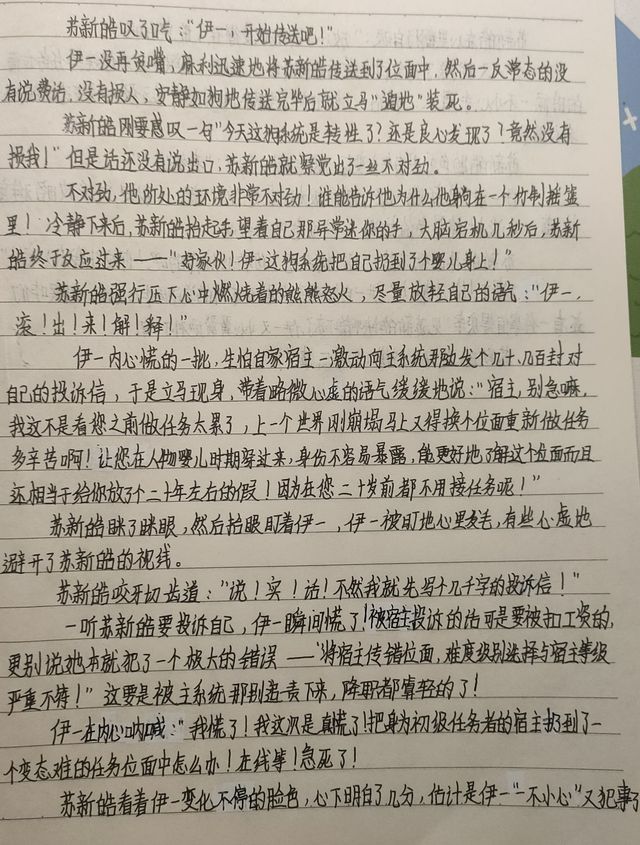 苏新皓叹了口气："伊一，开始传送吧！"
伊一没再贫嘴，麻利迅速地将苏新皓传送到了位面中，然后一反常态的没
有说费话，没有损人，安静如狗地传送完毕后就立马"遁地"装死。
苏新皓刚要感叹一句"今天这狗系统是转性了？还是良心发现了？竟然没有
损我！"但是话还没有说出口，苏新皓就察觉出了一丝不对劲。
不对劲，他所处的环境非常不对劲！谁能告诉他为什么他躺在一个竹制摇篮
里！冷静下来后，苏新皓抬起手望着自己那异常迷你的手，大脑宕机几秒后，苏新
皓终于反应过来——"好家伙！伊一这狗系统把自己扔到了个婴儿身上！"
苏新皓强行压下心中燃烧着的熊熊怒火，尽量放轻自己的语气："伊一，
滚！出！来！解！释！"
伊一内心慌的一批，生怕自家宿主一激动向主系统那边发个几十、几百封对
自己的投诉信，于是立马现身，带着略微心虚的语气缓缓地说："宿主，别急嘛，
我这不是看您之前做任务太累了，上一个世界刚崩塌马上又得换个位面重新做任务
多辛苦啊！让您在人物婴儿时期穿过来，身份不容易暴露，能更好地了解这个位面而且
还相当于给你放了个二十年左右的假！因为在您二十岁前都不用接任务呢！"
苏新皓眯了眯眼，然后抬眼盯着伊一，伊一被盯地心里发毛，有些心虚地
避开了苏新皓的视线。
苏新皓咬牙切齿道："说！实！话！不然我就先写十几千字的投诉信！"
一听苏新皓要投诉自己，伊一瞬间慌了！被宿主投诉的话可是要被扣工资的，
更别说她本就犯了一个极大的错误——'将宿主传错位面，难度级别选择与宿主等级
严重不符！"这要是被主系统那别追责下来，降职都算轻的了！
伊一在内心呐喊："我慌了！我这次是真慌了！把身为初级任务者的宿主扔到了一
个变态难的任务位面中怎么办！在线等！急死了！
苏新皓看着伊一变化不停的脸色，心下明白了几分，估计是伊一"一不小心"又犯事了